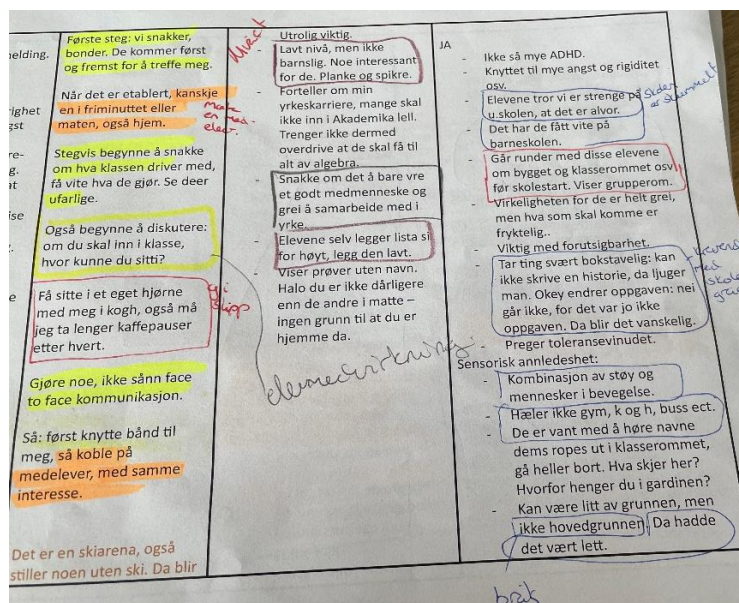 elding.
ighet
gst
re-
g.
at
ise
e
Første steg: vi snakker,
bonder. De kommer først
og fremst for å treffe meg.
Når det er etablert, kanskje
en i friminuttet eller
maten, også hjem.
Stegvis begynne å snakke
om hva klassen driver med,
få vite hva de gjør. Se deer
ufarlige.
Også begynne å diskutere:
om du skal inn i klasse,
hvor kunne du sitti?
Få sitte i et eget hjørne
med meg i kogh, også må
jeg ta lenger kaffepauser
etter hvert.
gi
slipp
Gjøre noe, ikke sånn face
to face kommunikasjon.
Så: først knytte bånd til
meg, så koble på
medelever, med samme
interesse.
Det er en skiarena, også
stiller noen uten ski. Da blir
Utrolig viktig.
- Lavt nivå, men ikke
barnslig. Noe interessant
for de. Planke og spikre.
- Forteller om min
yrkeskarriere, mange skal
ikke inn i Akademika lell.
Trenger ikke dermed
overtale at de skal få til
alt av algebra.
- Snakke om det å bare vre
et godt medmenneske og
grei å samarbeide med i
yrke.
- Elevene selv legger lista si
for høyt, legg den lavt.
- Viser prøver uten navn.
Halo du er ikke dårligere
enn de andre i matte –
ingen grunn til at du er
hjemme da.
elevmedvirkning
JA
- Ikke så mye ADHD.
- Knyttet til mye angst og rigiditet
osv.
- Elevene tror vi er strenge på
u.skolen, at det er alvor.
- Det har de fått vite på
barneskolen.
- Går runder med disse elevene
om bygget og klasserommet osv
før skolestart. Viser grupperom.
- Virkeligheten for de er helt grei,
men hva som skal komme er
fryktelig..
- Viktig med forutsigbarhet.
- Tar ting svært bokstavelig: kan
ikke skrive en historie, da ljuger
man. Okey endrer oppgaven: nei
går ikke, for det var jo ikke
oppgaven. Da blir det vanskelig.
- Preger toleransevinudet.
Sensorisk annledeshet:
- Kombinasjon av støy og
mennesker i bevegelse.
- Hæler ikke gym, k og h, buss ect.
- De er vant med å høre navne
dems ropes ut i klasserommet,
gå heller bort. Hva skjer her?
Hvorfor henger du i gardinen?
- Kan være litt av grunnen, men
ikke hovedgrunnen. Da hadde
det vært lett.